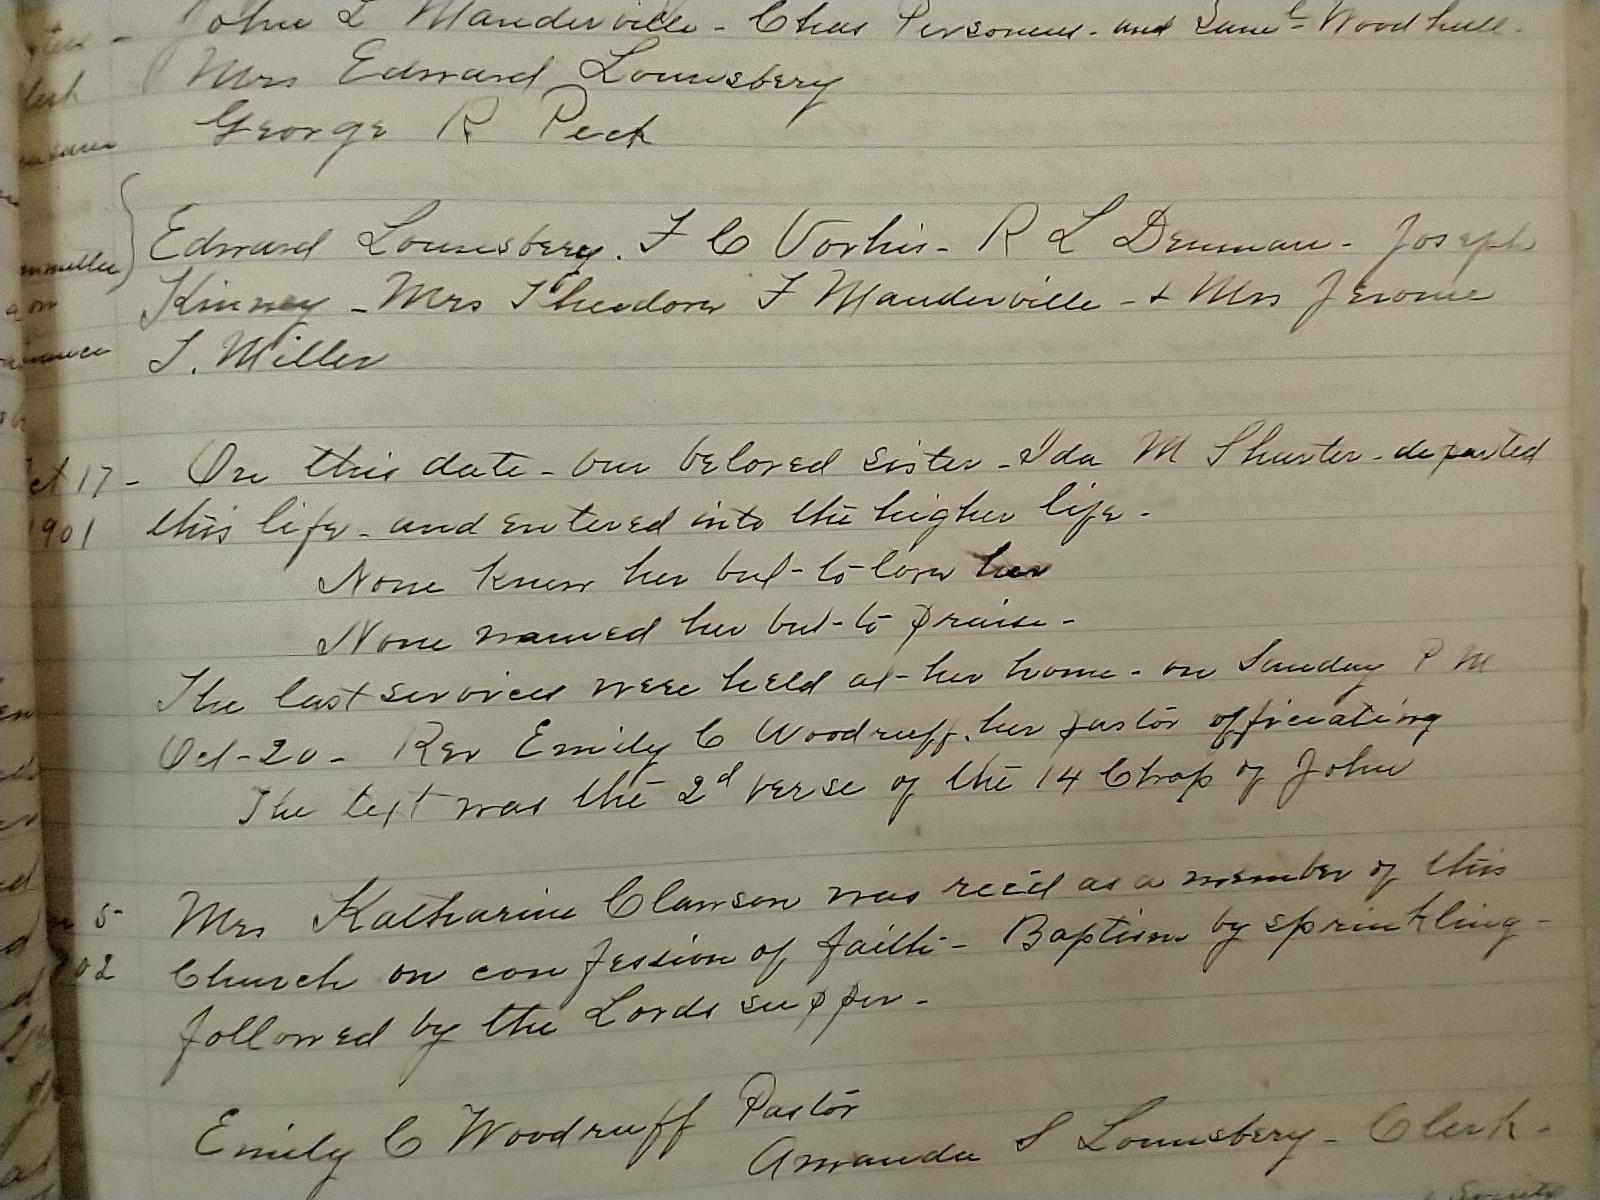 John L Manderville - Chas Personeus - and Saml Woodhull.
Mrs Edward Lounsbery
George R Peck
Edward Lounsbery. F C Vorhis - R L Denman - Joseph
Kinney - Mrs Theodore F Manderville - & Mrs Jerome
T. Miller
Oct 17 - On this date - our beloved sister - Ida M Shurter - departed
1901 this life - and entered into the higher life -
None knew her but - to love her
None named her but - to praise -
The last services were held at - her home - on Sunday P M
Oct - 20 - Rev Emily C Woodruff, her pastor officiating
The text was the 2d verse of the 14 Chap of John
5 Mrs Katharine Clawson was rec'd as a member of this
02 Church on confession of faith - Baptism by sprinkling -
followed by the Lords supper -
Emily C Woodruff Pastor
Amanda S Lounsbery - Clerk -